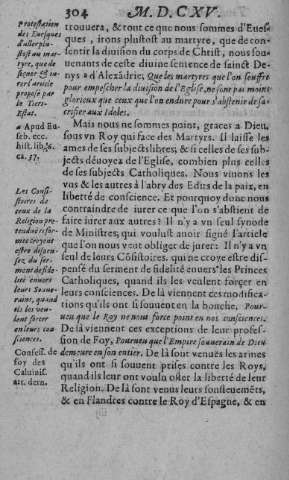 304
M. D. C. XV.
Protestation
des Euesques
d'aller plus
tost au mar-
tyre, que de
signer & iu-
rer l'article
proposé par
le Tiers-
Estat.
a Apud Eu-
seb. ecc.
hist. lib. 6.
ca. 37.
Les Consi-
stoires de
ceux de la
Religion pre-
tenduë refor-
mee croyent
estre dispen-
sez, du ser-
ment de fide-
lité enuers
leurs Souue-
rains, quand
ils les veu-
lent forcer
en leurs con-
sciences.
Confess. de
foy des
Caluinist.
art. dern.
trouuera, & tout ce que nous sommes d'Eues-
ques, irons plustost au martyre, que de con-
sentir la diuision du corps de Christ, nous sou-
uenants de ceste diuine sentence de sainct De-
nys a d'Alexãdrie, Que les martyres que l'on souffre
pour empescher la diuision de l'Eglise, ne sont pas moins
glorieux que ceux que l'on endure pour s'abstenir de sa-
crifier aux Idoles.
Mais nous ne sommes point, graces à Dieu,
sous vn Roy qui face des Martyrs. Il laisse les
ames de ses subjects libres; & si celles de ses sub-
jects déuoyez de l'Eglise, combien plus celles
de ses subjects Catholiques. Nous viuons les
vns & les autres à l'abry des Edits de la paix, en
liberté de conscience. Et pourquoy donc nous
contraindre de iurer ce que l'on s'abstient de
faire iurer aux autres? Il n'y a vn seul synode
de Ministres, qui voulust auoir signé l'article
que l'on nous veut obliger de iurer: Il n'y a vn
seul de leurs Cõsistoires, qui ne croye estre dis-
pensé du serment de fidelité enuers les Princes
Catholiques, quand ils les veulent forçer en
leurs consciences. De là viennent ces modifica-
tions qu'ils ont si souuent en la bouche, Pour-
ueu que le Roy ne nous force point en nos consciences.
De là viennent ces exceptions de leur profes-
sion de Foy, Pourueu que l'Empire souuerain de Dieu
demeure en son entier. De là sont venuës les armes
qu'ils ont si souuent prises contre les Roys,
quand ils leur ont voulu oster la liberté de leur
Religion. De là sont venus leurs sousleuemẽts,
& en Flandres contre le Roy d'Espagne, & en